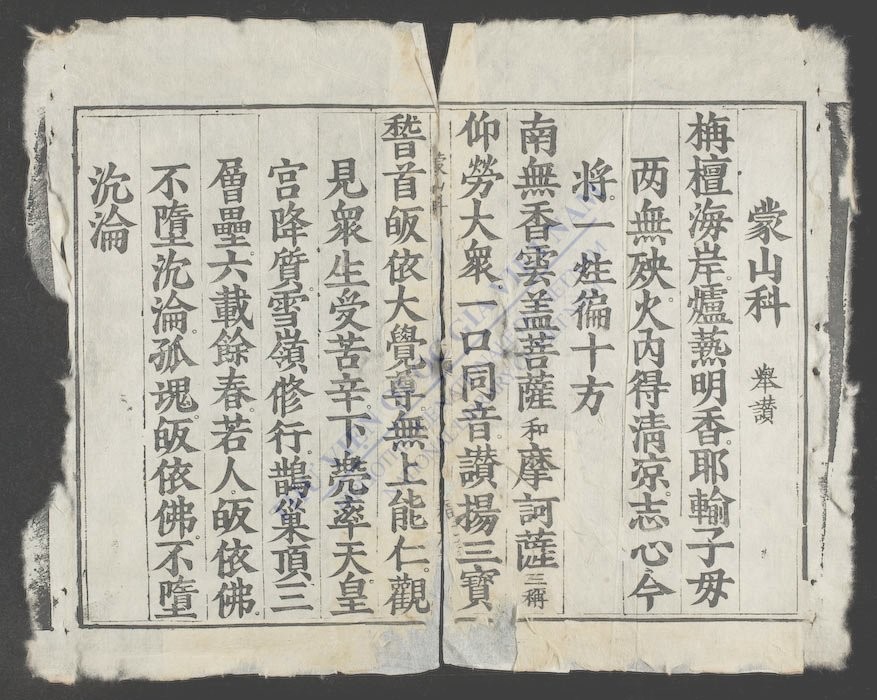 蒙山科 舉讃
栴檀海岸。爐爇明香。耶輸子毋
两無殃。火內得清凉。志心今
将。一炷徧十方
南無香雲盖菩薩 和 摩訶薩 三稱
仰勞大衆一口同音。讃揚三寳
蒙山科
稽首皈依大覺尊。無上能仁。觀
見衆生受苦辛。下兠率天皇
宮降質。雪嶺修行。鵲巢頂。三
層壘。六載餘春。若人。皈依佛。
不墮沉淪。孤魂。皈依佛。不墮
沉淪
THƯ VIỆN QUỐC GIA VIỆT NAM
NATIONAL LIBRARY OF VIETNAM